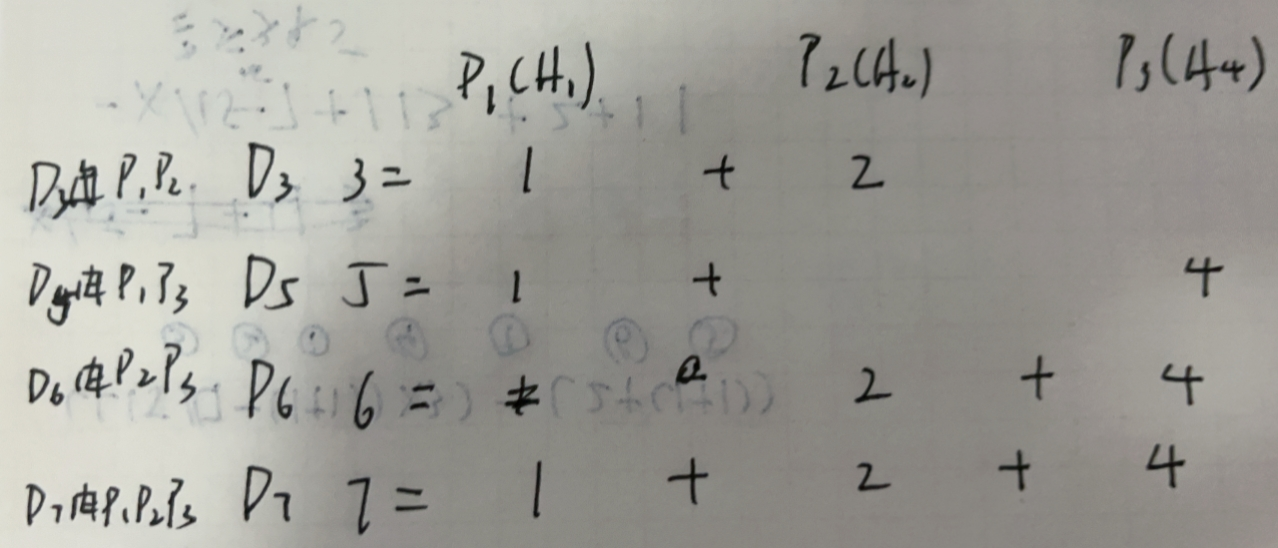 P₁(H₁) P₂(H₂) P₃(H4)
D₃由P₁P₂ D₃ 3 = 1 + 2
D5由P₁P₃ D5 5 = 1 + 4
D6由P₂P₃ D6 6 = 2 + 4
D₇由P₁P₂P₃ D₇ 7 = 1 + 2 + 4